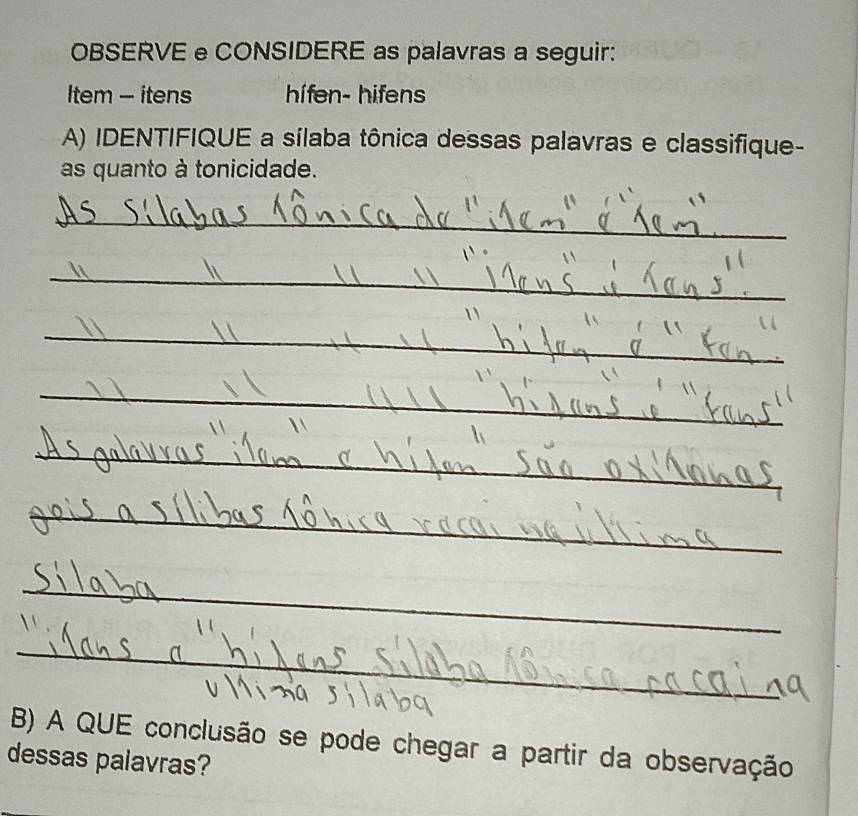 OBSERVE e CONSIDERE as palavras a seguir:
Item – itens hífen- hifens
A) IDENTIFIQUE a sílaba tônica dessas palavras e classifique-
as quanto à tonicidade.
As sílabas tônica de "item" é "tem".
" " " " "itens" é tens".
" " " " "hifen" é "fen".
" " " " "hifens" é "fens"
As palavras "item" e hífen" são oxítonas,
pois a sílibas tônica recai na última
sílaba
"itens e "hifens sílaba tônica recai na
ultima sílaba
B) A QUE conclusão se pode chegar a partir da observação
dessas palavras?